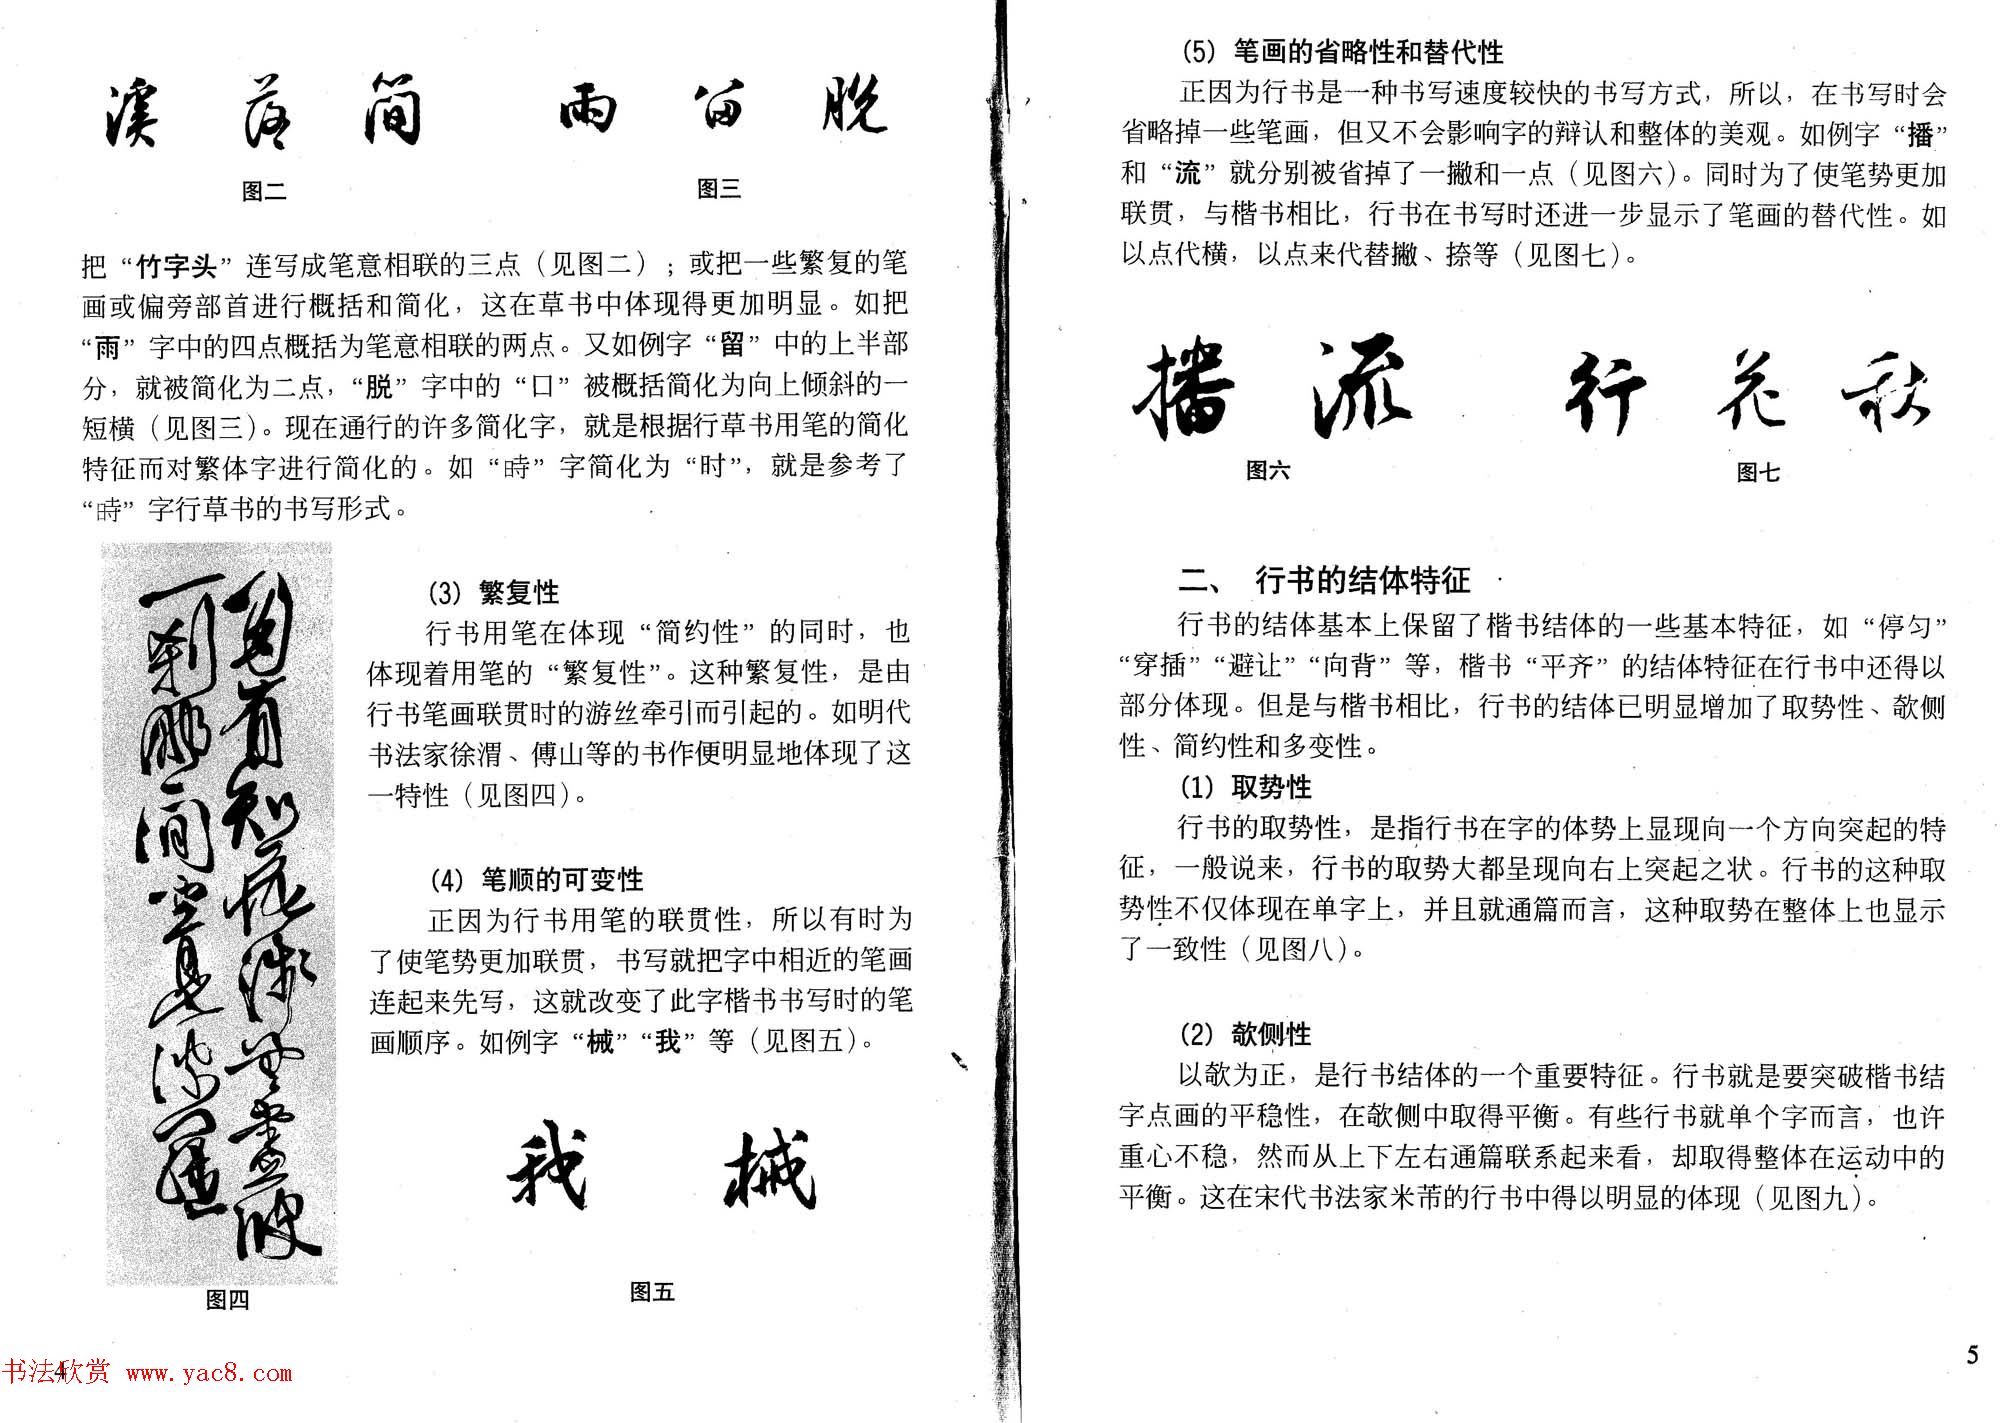 溪 落 簡 雨 留 脱
图二 图三
把“竹字头”连写成笔意相联的三点（见图二）；或把一些繁复的笔
画或偏旁部首进行概括和简化，这在草书中体现得更加明显。如把
“雨”字中的四点概括为笔意相联的两点。又如例字“留”中的上半部
分，就被简化为二点，“脱”字中的“口”被概括简化为向上倾斜的一
短横（见图三）。现在通行的许多简化字，就是根据行草书用笔的简化
特征而对繁体字进行简化的。如“時”字简化为“时”，就是参考了
“時”字行草书的书写形式。
(3) 繁复性
行书用笔在体现“简约性”的同时，也
体现着用笔的“繁复性”。这种繁复性，是由
行书笔画联贯时的游丝牵引而引起的。如明代
书法家徐渭、傅山等的书作便明显地体现了这
一特性（见图四）。
(4) 笔顺的可变性
正因为行书用笔的联贯性，所以有时为
了使笔势更加联贯，书写就把字中相近的笔画
连起来先写，这就改变了此字楷书书写时的笔
画顺序。如例字“械”“我”等（见图五）。
我 械
图五
图四
4
书法欣赏 www.yac8.com
(5) 笔画的省略性和替代性
正因为行书是一种书写速度较快的书写方式，所以，在书写时会
省略掉一些笔画，但又不会影响字的辩认和整体的美观。如例字“播”
和“流”就分别被省掉了一撇和一点（见图六）。同时为了使笔势更加
联贯，与楷书相比，行书在书写时还进一步显示了笔画的替代性。如
以点代横，以点来代替撇、捺等（见图七）。
播 流 行 花 秋
图六 图七
二、 行书的结体特征
行书的结体基本上保留了楷书结体的一些基本特征，如“停匀”
“穿插”“避让”“向背”等，楷书“平齐”的结体特征在行书中还得以
部分体现。但是与楷书相比，行书的结体已明显增加了取势性、欹侧
性、简约性和多变性。
(1) 取势性
行书的取势性，是指行书在字的体势上显现向一个方向突起的特
征，一般说来，行书的取势大都呈现向右上突起之状。行书的这种取
势性不仅体现在单字上，并且就通篇而言，这种取势在整体上也显示
了一致性（见图八）。
(2) 欹侧性
以欹为正，是行书结体的一个重要特征。行书就是要突破楷书结
字点画的平稳性，在欹侧中取得平衡。有些行书就单个字而言，也许
重心不稳，然而从上下左右通篇联系起来看，却取得整体在运动中的
平衡。这在宋代书法家米芾的行书中得以明显的体现（见图九）。
5